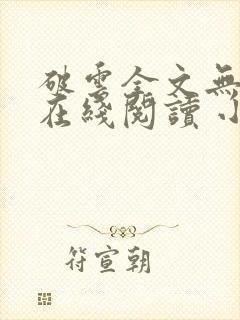 破雲全文無
在綫閱讀小
符宣朝